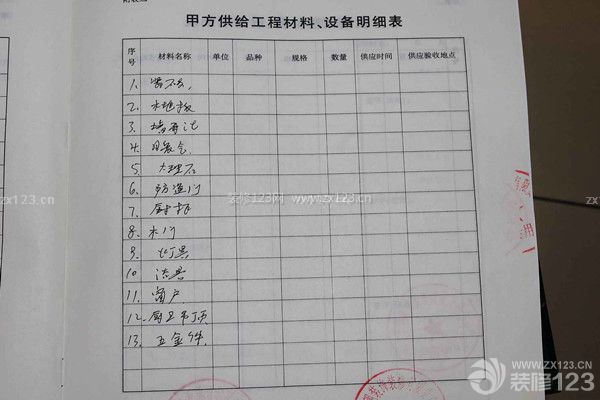 甲方供给工程材料、设备明细表
序号 材料名称 单位 品种 规格 数量 供应时间 供应验收地点
1、
2、木地板
3、
4、
5、大理石
6、防盗门
7、厨柜
8、木门
9、灯具
10、洁具
11、窗户
12、厨卫吊顶
13、五金件
装修123网 www.zx123.cn
zx123.cn
WWW.ZX123.CN
装修123